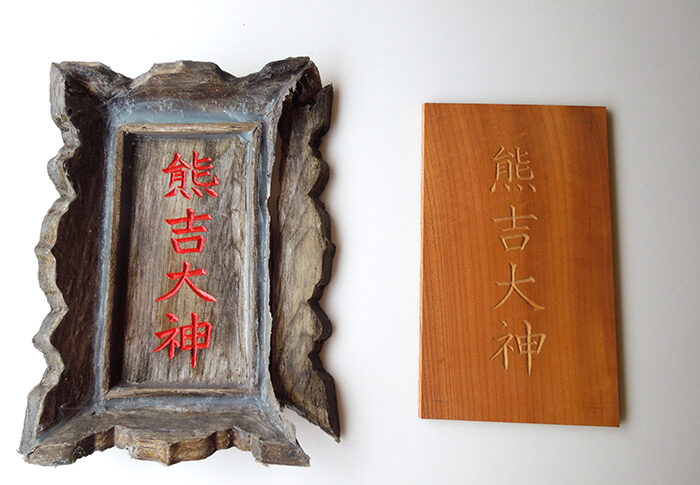 熊吉大神
熊吉大神